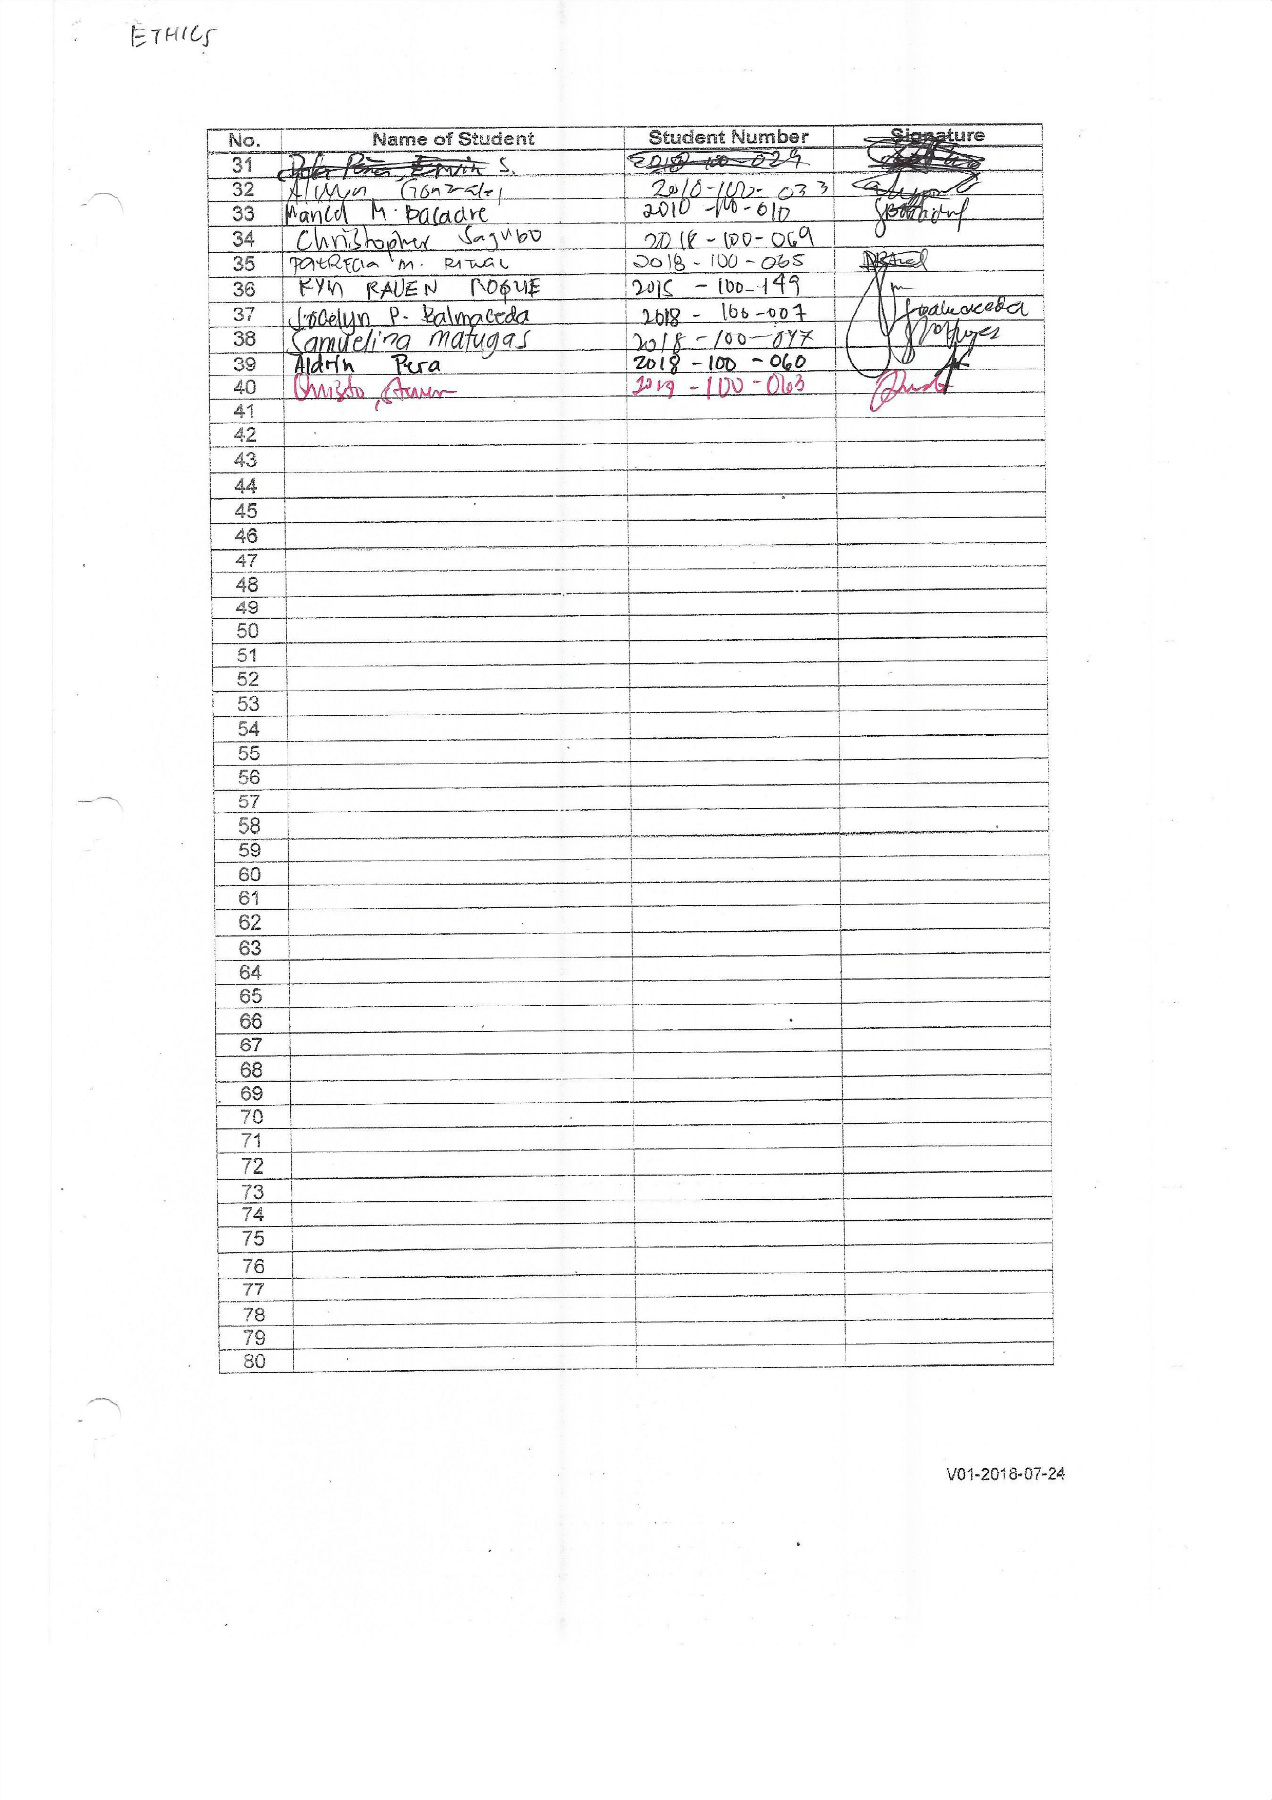 ETHICS
No. Name of Student Student Number Signature
31 S. 2018-100-029
32 Gonzales 2018-100-033
33 M. Baladre 2018-100-010
34 Christopher Sagubo 2018-100-069
35 PATRECIA M. RIWAL 2018-100-065
36 KYN RAVEN ROQUE 2015-100-149
37 Jocelyn P. Balmaceda 2018-100-007
38 Samuelina Matugas 2018-100-047
39 Aldrin Pera 2018-100-060
40 -100-063
41
42
43
44
45
46
47
48
49
50
51
52
53
54
55
56
57
58
59
60
61
62
63
64
65
66
67
68
69
70
71
72
73
74
75
76
77
78
79
80
V01-2018-07-24